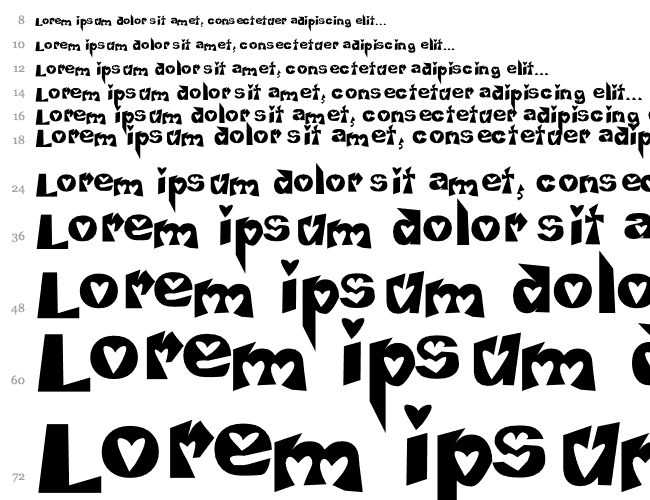 8 Lorem ipsum dolor sit amet, consectetuer adipiscing elit...
10 Lorem ipsum dolor sit amet, consectetuer adipiscing elit...
12 Lorem ipsum dolor sit amet, consectetuer adipiscing elit...
14 Lorem ipsum dolor sit amet, consectetuer adipiscing elit...
16 Lorem ipsum dolor sit amet, consectetuer adipiscing
18 Lorem ipsum dolor sit amet, consectetuer adip
24 Lorem ipsum dolor sit amet, consec
36 Lorem ipsum dolor sit a
48 Lorem ipsum dolo
60 Lorem ipsum d
72 Lorem ipsum